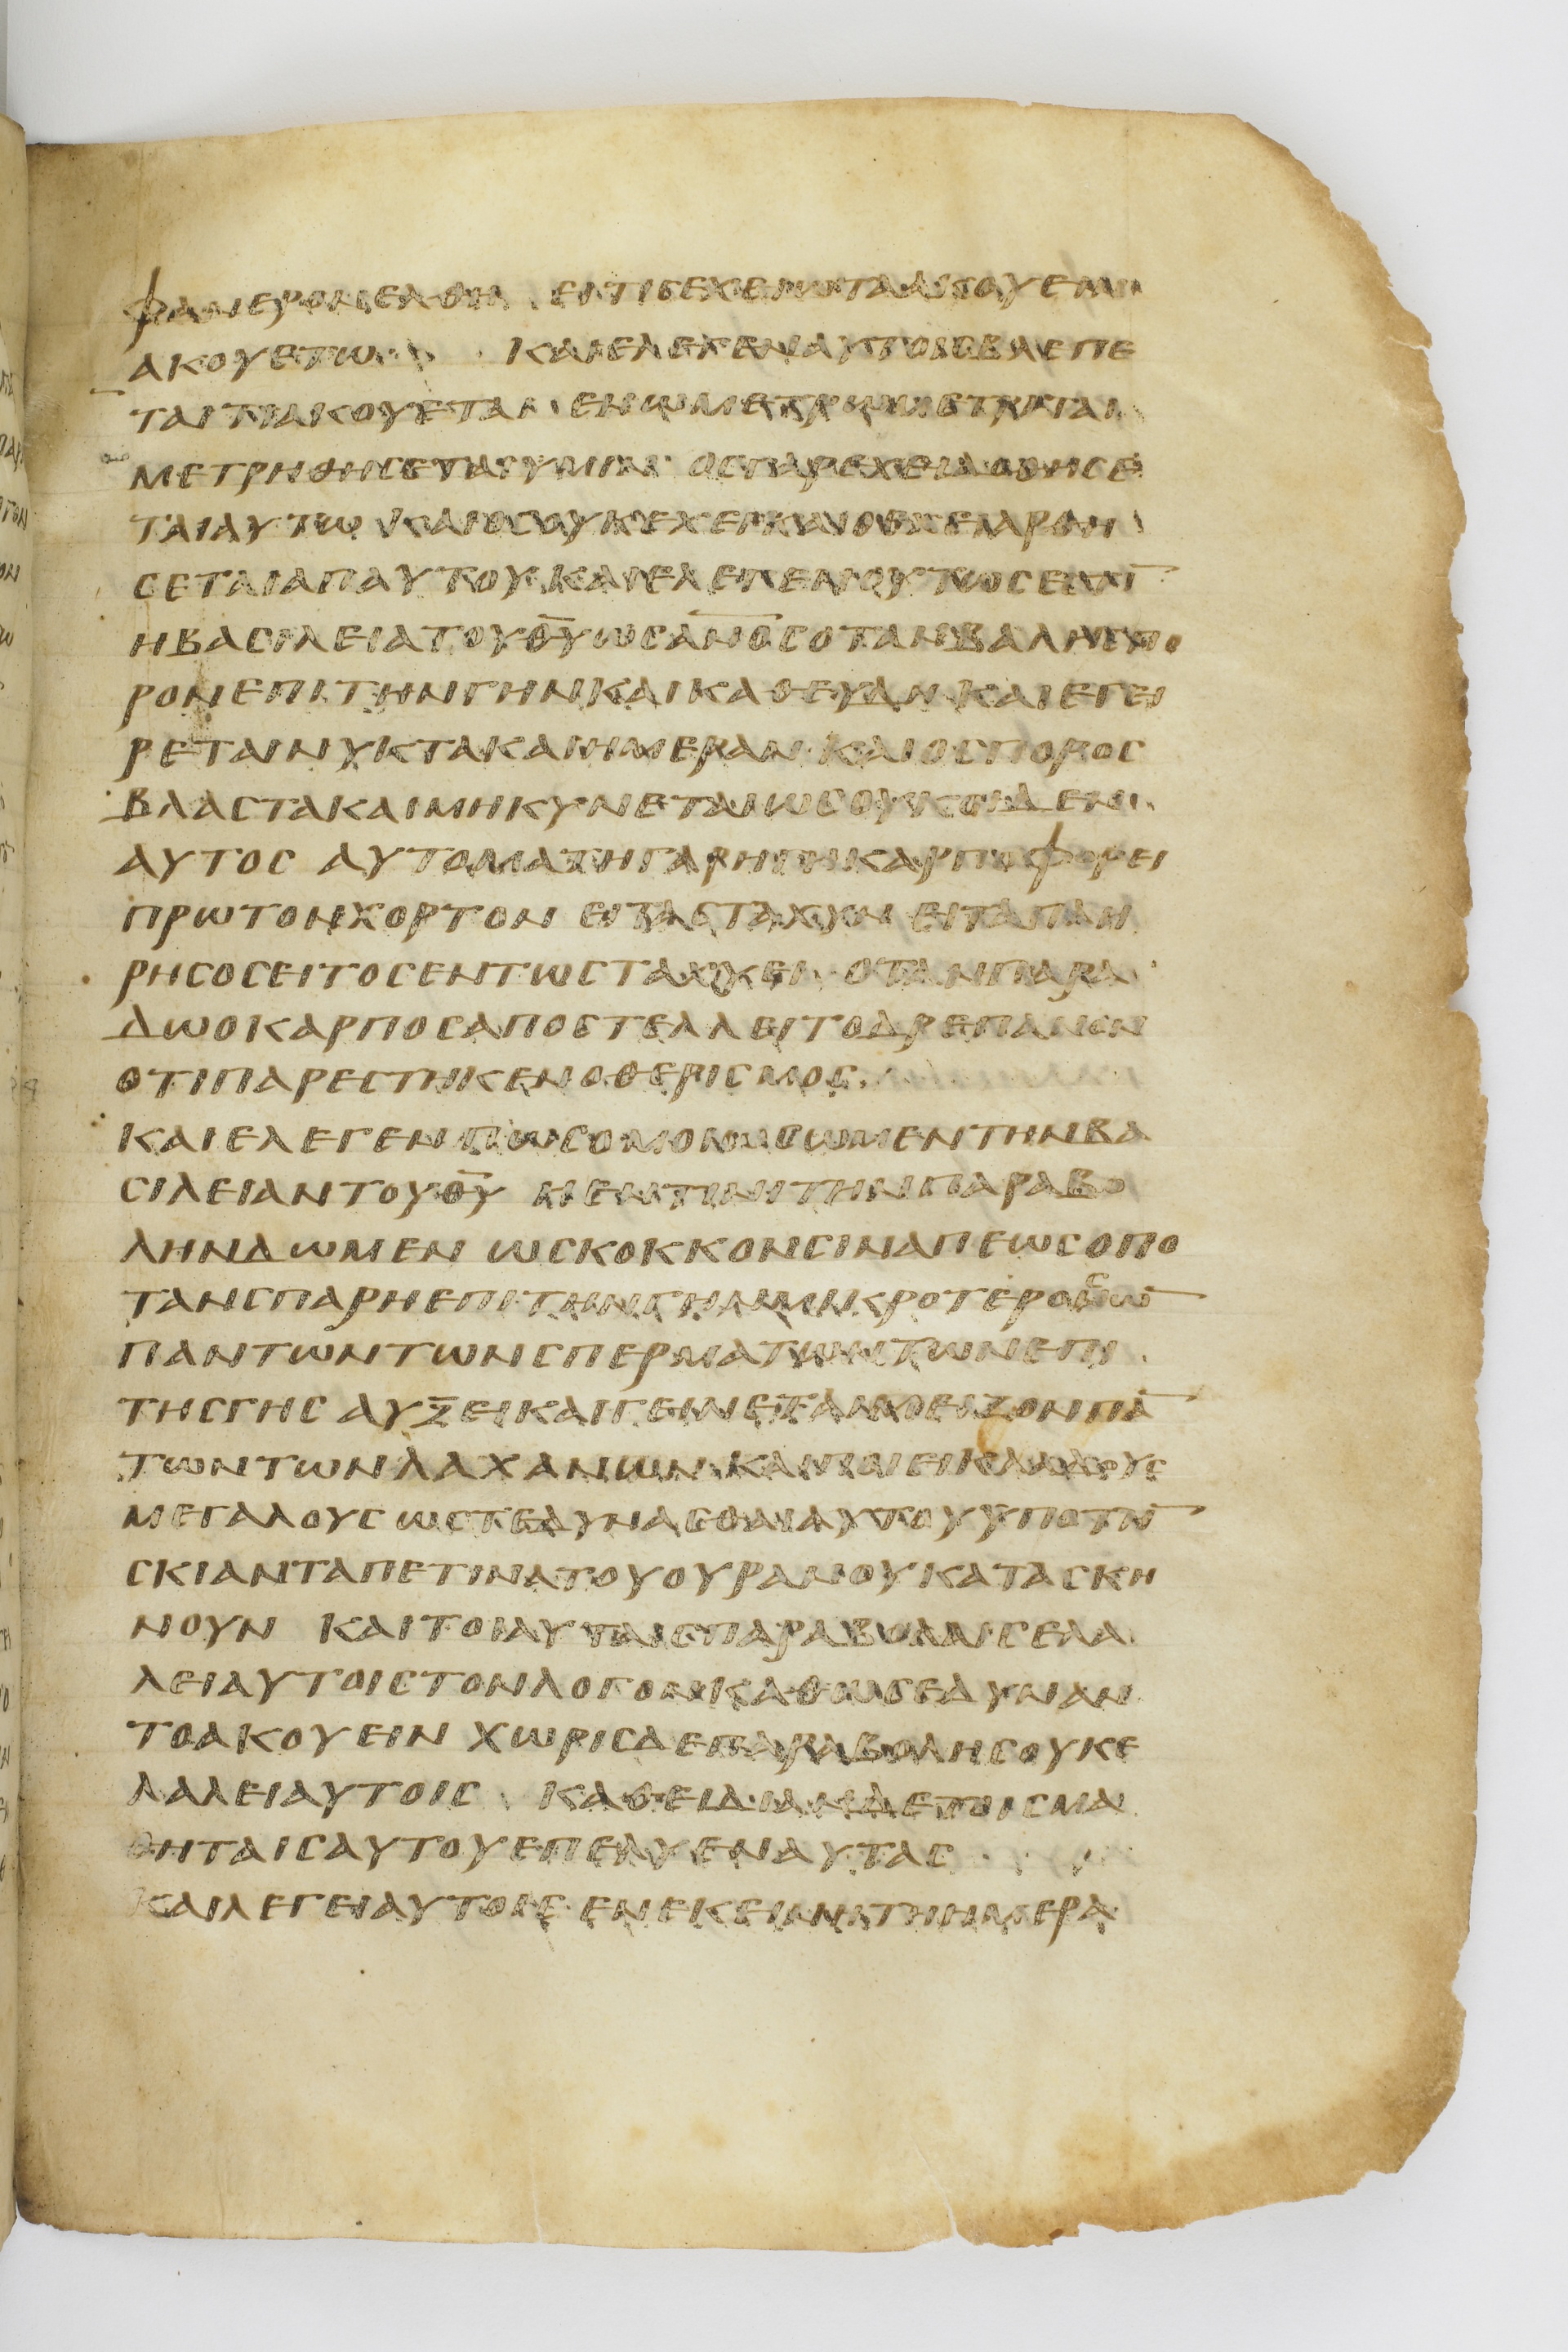 ΦΑΝΕΡΟΝΕΛΘΗ ΕΙΤΙCΕΧΕΙΩΤΑΑΚΟΥΕΙΝ
ΑΚΟΥΕΤΩ ΚΑΙΕΛΕΓΕΝΑΥΤΟΙCΒΛΕΠΕ
ΤΑΙΤΙΑΚΟΥΕΤΑΙ ΕΝΩΜΕΤΡΩΜΕΤΡΙΤΑΙ
ΜΕΤΡΗΘΗCΕΤΑΙΥΜΙΝ ΟCΓΑΡΕΧΕΙΔΟΘΗCΕ
ΤΑΙΑΥΤΩ ΚΑΙΟCΟΥΚΕΧΕΙΚΑΙΟΕΧΕΙΑΡΘΗ
CΕΤΑΙΑΠΑΥΤΟΥ ΚΑΙΕΛΕΓΕΝΟΥΤΩCΕCΤΙ̅
ΗΒΑCΙΛΕΙΑΤΟΥΘ̅Υ̅ΩCΑ̅Ν̅Ο̅C̅ΟΤΑΝΒΑΛΗCΠΟ
ΡΟΝΕΠΙΤΗΝΓΗΝΚΑΙΚΑΘΕΥΔΗ ΚΑΙΕΓΕΙ
ΡΕΤΑΙΝΥΚΤΑΚΑΙΗΜΕΡΑΝ ΚΑΙΟCΠΟΡΟC
ΒΛΑCΤΑΚΑΙΜΗΚΥΝΕΤΑΙΩCΟΥΚΟΙΔΕΝ
ΑΥΤΟC ΑΥΤΟΜΑΤΗΓΑΡΗΓΗΚΑΡΠΟΦΟΡΕΙ
ΠΡΩΤΟΝΧΟΡΤΟΝ ΕΙΤΑCΤΑΧΥΝ ΕΙΤΑΠΛΗ
ΡΗCΟCΕΙΤΟCΕΝΤΩCΤΑΧΥΕΙ ΟΤΑΝΠΑΡΑ
ΔΩΟΚΑΡΠΟCΑΠΟCΤΕΛΛΕΙΤΟΔΡΕΠΑΝΟΝ
ΟΤΙΠΑΡΕCΤΗΚΕΝΟΘΕΡΙCΜΟC
ΚΑΙΕΛΕΓΕΝΠΩCΟΜΟΙΩCΩΜΕΝΤΗΝΒΑ
CΙΛΕΙΑΝΤΟΥΘ̅Υ̅ ΗΕΝΤΙΝΙΤΗΝΠΑΡΑΒΟ
ΛΗΝΔΩΜΕΝ ΩCΚΟΚΚΟΝCΙΝΑΠΕΩCΟΠΟ
ΤΑΝCΠΑΡΗΕΠΙΤΗΝΓΗΝΜΙΚΡΟΤΕΡΟCΩ̅
ΠΑΝΤΩΝΤΩΝCΠΕΡΜΑΤΩΝΤΩΝΕΠΙ
ΤΗCΓΗC ΑΥΞΕΙΚΑΙΓΕΙΝΕΤΑΙΜΕΙΖΟΝΠΑ̅
ΤΩΝΤΩΝΛΑΧΑΝΩΝ ΚΑΙΠΟΙΕΙΚΛΑΔΟΥC
ΜΕΓΑΛΟΥCΩCΤΕΔΥΝΑCΘΑΙΑΥΤΟΥΥΠΟΤΗ̅
CΚΙΑΝΤΑΠΕΤΙΝΑΤΟΥΟΥΡΑΝΟΥΚΑΤΑCΚΗ
ΝΟΥΝ ΚΑΙΤΟΙΑΥΤΑΙCΠΑΡΑΒΟΛΑΙCΕΛΑ
ΛΕΙΑΥΤΟΙCΤΟΝΛΟΓΟΝΚΑΘΩCΕΔΥΝΑΝ
ΤΟΑΚΟΥΕΙΝ ΧΩΡΙCΔΕΠΑΡΑΒΟΛΗCΟΥΚΕ
ΛΑΛΕΙΑΥΤΟΙC ΚΑΘΕΙΔΙΑΝΔΕΤΟΙCΜΑ
ΘΗΤΑΙCΑΥΤΟΥΕΠΕΛΥΕΝΑΥΤΑC
ΚΑΙΛΕΓΕΙΑΥΤΟΙC ΕΝΕΚΕΙΝΗΤΗΗΜΕΡΑ